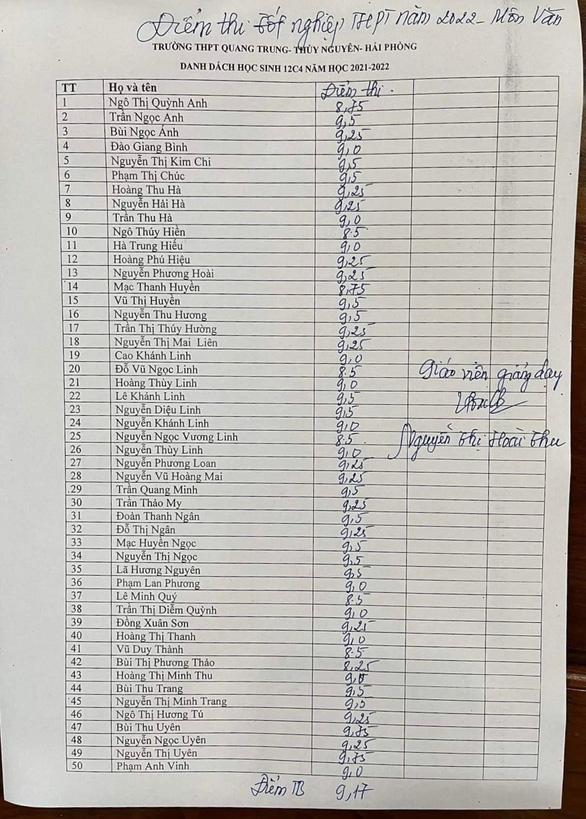 Điểm thi Tốt nghiệp THPT năm 2022 - Môn Văn
TRƯỜNG THPT QUANG TRUNG- THỦY NGUYÊN- HẢI PHÒNG
DANH DÁCH HỌC SINH 12C4 NĂM HỌC 2021-2022
TT Họ và tên Điểm thi.
1 Ngô Thị Quỳnh Anh 8,75
2 Trần Ngọc Anh 9,5
3 Bùi Ngọc Ánh 9,25
4 Đào Giang Bình 9,0
5 Nguyễn Thị Kim Chi 9,5
6 Phạm Thị Chúc 9,5
7 Hoàng Thu Hà 9,25
8 Nguyễn Hải Hà 9,25
9 Trần Thu Hà 9,0
10 Ngô Thúy Hiền 8.5
11 Hà Trung Hiếu 9,0
12 Hoàng Phú Hiệu 9,25
13 Nguyễn Phương Hoài 9,25
14 Mạc Thanh Huyền 8,75
15 Vũ Thị Huyền 9,5
16 Nguyễn Thu Hương 9,5
17 Trần Thị Thúy Hường 9,25
18 Nguyễn Thị Mai Liên 9,25
19 Cao Khánh Linh 9,0
20 Đỗ Vũ Ngọc Linh 8.5 Giáo viên giảng dạy
21 Hoàng Thùy Linh 9,0
22 Lê Khánh Linh 9,5
23 Nguyễn Diệu Linh 9,5
24 Nguyễn Khánh Linh 9,0
25 Nguyễn Ngọc Vương Linh 8.5 Nguyễn Thị Hoài Thu
26 Nguyễn Thùy Linh 9,0
27 Nguyễn Phương Loan 9,25
28 Nguyễn Vũ Hoàng Mai 9,25
29 Trần Quang Minh 9,5
30 Trần Thảo My 9,25
31 Đoàn Thanh Ngân 9,5
32 Đỗ Thị Ngân 9,25
33 Mạc Huyền Ngọc 9,5
34 Nguyễn Thị Ngọc 9,5
35 Lã Hương Nguyên 9,5
36 Phạm Lan Phương 9,0
37 Lê Minh Quý 8.5
38 Trần Thị Diễm Quỳnh 9,0
39 Đồng Xuân Sơn 9,25
40 Hoàng Thị Thanh 9,0
41 Vũ Duy Thành 8.5
42 Bùi Thị Phương Thảo 8,25
43 Hoàng Thị Minh Thu
44 Bùi Thu Trang 9,5
45 Nguyễn Thị Minh Trang 9,5
46 Ngô Thị Hương Tú 9,25
47 Bùi Thu Uyên 9,75
48 Nguyễn Ngọc Uyên 9,25
49 Nguyễn Thị Uyên 9,75
50 Phạm Anh Vinh 9,0
Điểm TB 9,17